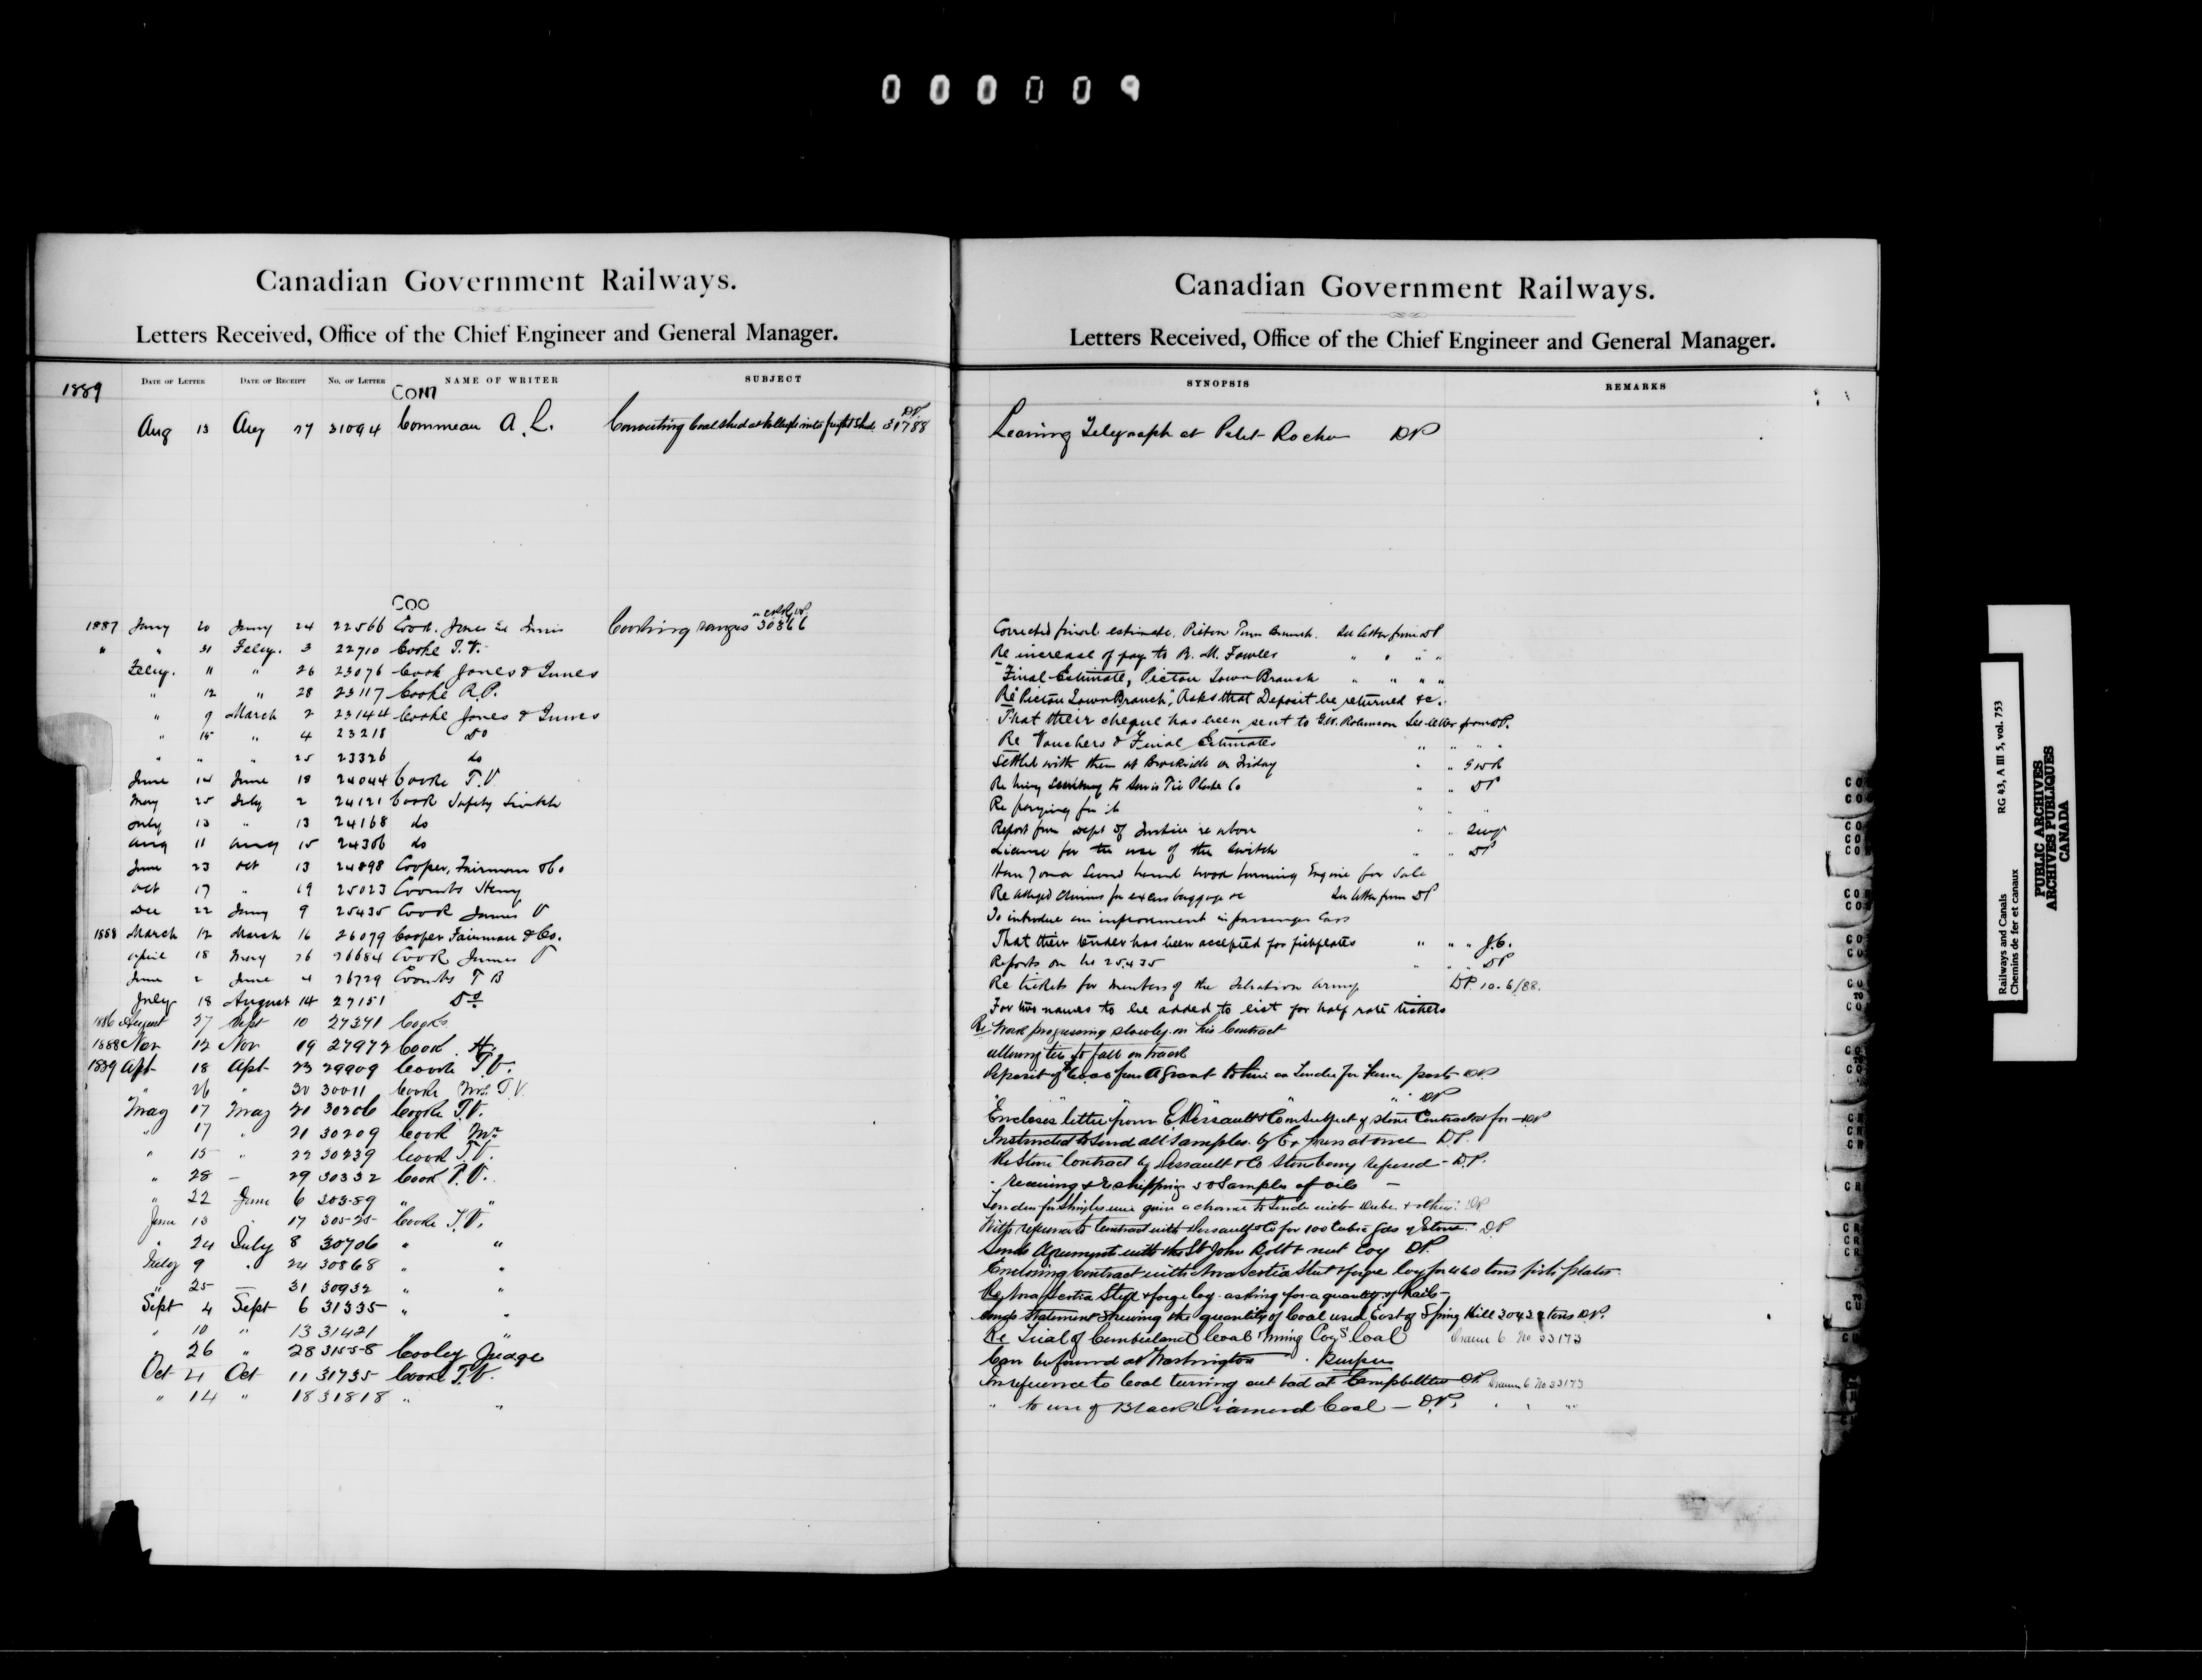 000009
Canadian Government Railways.
Letters Received, Office of the Chief Engineer and General Manager.
DATE OF LETTER DATE OF RECEIPT No. OF LETTER NAME OF WRITER SUBJECT
1889
COM
Aug 13 Aug 27 31094 Commeau A. L. Converting Coal shed at into freight shed 31788 DP
COO
1887 Jany 20 Jany 24 22566 Cook. Jones & Innis Cooking ranges 30866
" " 31 Feby. 3 22710 Cooke T. V.
Feby. 11 " 26 23076 Cook Jones & Innes
" 12 " 28 23117 Cooke R. P.
" 9 March 2 23144 Cooke Jones & Innes
" 15 " 4 23218 Do
" " " 25 23326 do
June 14 June 18 24044 Cooke T. V
May 25 July 2 24121 Cook Safety Switch
July 13 " 13 24168 do
Aug 11 Aug 15 24306 do
June 23 Oct 13 24898 Cooper, Fairman & Co
Oct 17 " 19 25023 Coombs Henry
Dec 22 Jany 9 25435 Cook James V
1888 March 12 March 16 26079 Cooper Fairman & Co.
April 18 May 26 26684 Cook James V
June 2 June 4 26729 Coombs T B
July 18 August 14 27151 Do
1886 August 27 Sept 10 27371 Cooks
1888 Nov 12 Nov 19 27972 Cook. H.
1889 Apl 18 Apl 23 29909 Cooke T. V.
" 26 " 30 30011 Cooke Mr T. V.
May 17 May 20 30206 Cooke T. V.
" 17 " 21 30209 Cook Mr
" 15 " 22 30239 Cook T. V.
" 28 – 29 30332 Cook T. V.
" 22 June 6 30389 " "
June 13 " 17 30525 Cooke T. V.
" 24 July 8 30706 " "
July 9 " 24 30868 " "
" 25 — 31 30932 " "
Sept 4 Sept 6 31335 " "
" 10 " 13 31421 "
" 26 " 28 31558 Cooley Judge
Oct 4 Oct 11 31735 Cooke T. V.
" 14 " 18 31818 " "
Canadian Government Railways.
Letters Received, Office of the Chief Engineer and General Manager.
SYNOPSIS REMARKS
Leasing Telegraph at Petit Rocher DP
Corrected final estimate, Pictou Town Branch. See letter from DP
Re increase of pay to R. M. Fowler " " " "
Final Estimate, Pictou Town Branch " " " "
Re "Pictou Town Branch", Asks that Deposit be returned &c.
That their cheque has been sent to G.W. Robinson See letter from DP.
Re Vouchers & Final Estimates " " " "
Settled with them at Brockville on Friday " " GWR
Re hiring to Servis Tie Plate Co " " DP
Re paying for it " " "
Report from Dept of Justice re above " "
License for the use of the Switch " " DP
Have 7 second hand wood burning Engine for Sale
Re alleged claims for excess baggage &c See letter from DP
To introduce an improvement in passenger Cars
That their tender has been accepted for fishplates " " " J.C.
Reports on No 25435 " " DP
Re tickets for members of the Salvation Army DP. 10-6/88.
For two names to be added to list for half rate tickets
Re Work progressing slowly on his Contract
allowing ties to fall on track
Deposit of from A Grant to him on Tender for Fence posts DP
" " " " DP
Encloses letter from E. Dussault & Co on subject of stone Contracted for — DP
Instructed to send all samples by Express at once D.P.
Re Stone Contract by Dussault & Co refused – D.P.
" receiving & reshipping 50 Samples of oils –
DP
With reference to Contract with Dussault & Co for 100 Cubic yds of Stone. DP
Sends Agreement with the St John Bolt & nut Coy DP
Enclosing contract with Nova Scotia Steel & forge Coy for 460 tons fish plates.
Re Nova Scotia Steel & forge Coy. asking for a quantity of Rails –
Sends Statement Shewing the quantity of Coal used East of Spring Hill 30434 tons DP.
Re Trial of Cumberland Coal Mining Coy's Coal Drawer 6 No 33173
Can be found at Washington
In reference to Coal turning out bad at Campbellton DP. Drawer 6 No 33173
" to use of Black Diamond Coal — D.P. " " "
Railways and Canals RG 43, A III 5, vol. 753
Chemins de fer et canaux
PUBLIC ARCHIVES
ARCHIVES PUBLIQUES
CANADA